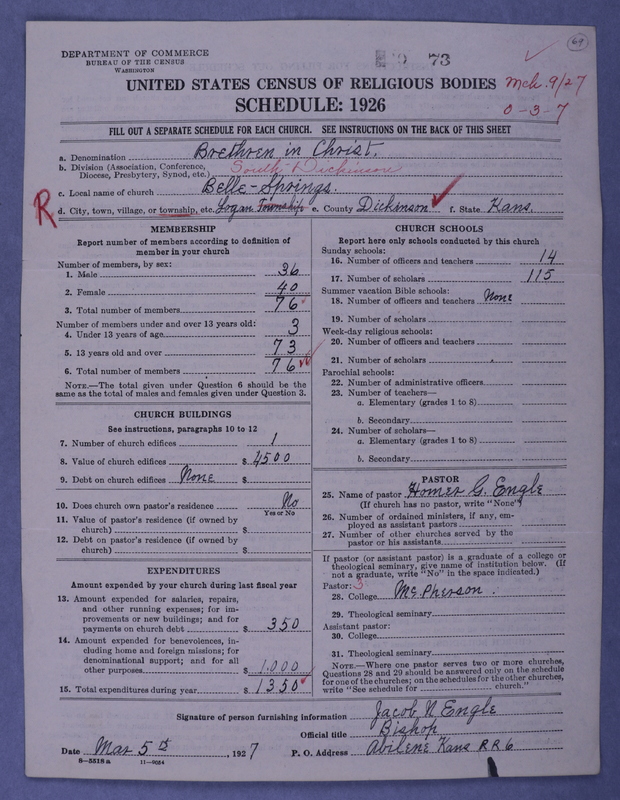 DEPARTMENT OF COMMERCE
BUREAU OF THE CENSUS
WASHINGTON
73
69
UNITED STATES CENSUS OF RELIGIOUS BODIES
Mch. 9/27
SCHEDULE: 1926
0-3-7
FILL OUT A SEPARATE SCHEDULE FOR EACH CHURCH. SEE INSTRUCTIONS ON THE BACK OF THIS SHEET
a. Denomination Brethren in Christ.
b. Division (Association, Conference, Diocese, Presbytery, Synod, etc.) South Dickinson
c. Local name of church Belle-Springs.
R
d. City, town, village, or township, etc. Logan Township e. County Dickinson f. State Kans.
MEMBERSHIP
Report number of members according to definition of
member in your church
Number of members, by sex:
1. Male 36
2. Female 40
3. Total number of members 76
Number of members under and over 13 years old:
4. Under 13 years of age 3
5. 13 years old and over 73
6. Total number of members 76
NOTE.—The total given under Question 6 should be the
same as the total of males and females given under Question 3.
CHURCH BUILDINGS
See instructions, paragraphs 10 to 12
7. Number of church edifices 1
8. Value of church edifices $ 4500
9. Debt on church edifices None $
10. Does church own pastor's residence No
Yes or No
11. Value of pastor's residence (if owned by
church) $
12. Debt on pastor's residence (if owned by
church) $
EXPENDITURES
Amount expended by your church during last fiscal year
13. Amount expended for salaries, repairs,
and other running expenses; for im-
provements or new buildings; and for
payments on church debt $ 350
14. Amount expended for benevolences, in-
cluding home and foreign missions; for
denominational support; and for all
other purposes $ 1.000
15. Total expenditures during year $ 1350
CHURCH SCHOOLS
Report here only schools conducted by this church
Sunday schools:
16. Number of officers and teachers 14
17. Number of scholars 115
Summer vacation Bible schools:
18. Number of officers and teachers None
19. Number of scholars
Week-day religious schools:
20. Number of officers and teachers
21. Number of scholars
Parochial schools:
22. Number of administrative officers
23. Number of teachers—
a. Elementary (grades 1 to 8)
b. Secondary
24. Number of scholars—
a. Elementary (grades 1 to 8)
b. Secondary
PASTOR
25. Name of pastor Homer G. Engle
(If church has no pastor, write "None")
26. Number of ordained ministers, if any, em-
ployed as assistant pastors
27. Number of other churches served by the
pastor or his assistants
If pastor (or assistant pastor) is a graduate of a college or
theological seminary, give name of institution below. (If
not a graduate, write "No" in the space indicated.)
Pastor: 3
28. College McPherson.
29. Theological seminary
Assistant pastor:
30. College
31. Theological seminary
NOTE.—Where one pastor serves two or more churches,
Questions 28 and 29 should be answered only on the schedule
for one of the churches; on the schedules for the other churches,
write "See schedule for church."
Signature of person furnishing information Jacob N Engle
Official title Bishop
Date Mar 5th, 1927 P. O. Address Abilene Kans RR6
8—5518a 11—9054